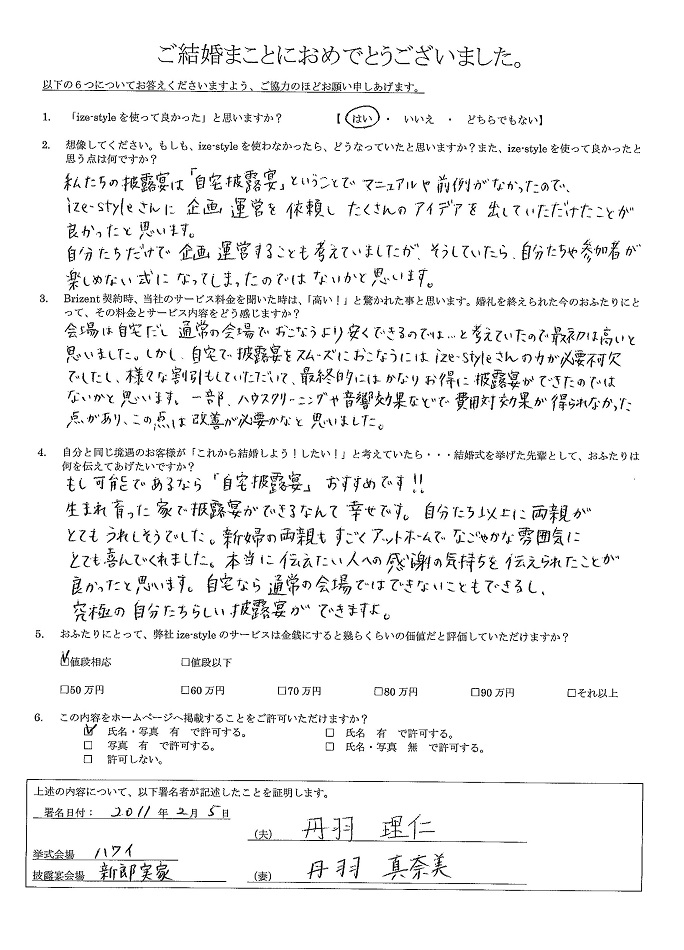 ご結婚まことにおめでとうございました。
以下の6つについてお答えくださいますよう、ご協力のほどお願い申しあげます。
1. 「ize-styleを使って良かった」と思いますか？ 【 はい ・ いいえ ・ どちらでもない】
2. 想像してください。もしも、ize-styleを使わなかったら、どうなっていたと思いますか？また、ize-styleを使って良かったと
思う点は何ですか？
私たちの披露宴は「自宅披露宴」ということで マニュアルや前例がなかったので、
ize-styleさんに 企画 運営を依頼し たくさんのアイデアを出していただけたことが
良かったと思います。
自分たちだけで企画運営することも考えていましたが、そうしていたら、自分たちや参加者が
楽しめない式になってしまったのではないかと思います。
3. Brizent契約時、当社のサービス料金を聞いた時は、「高い！」と驚かれた事と思います。婚礼を終えられた今のおふたりにと
って、その料金とサービス内容をどう感じますか？
会場は自宅だし 通常の会場でおこなうより安くできるのでは…と考えていたので最初は高いと
思いました。しかし、自宅で披露宴をスムーズにおこなうには ize-styleさんの力が必要不可欠
でしたし、様々な割引もしていただいて、最終的にはかなりお得に披露宴ができたのでは
ないかと思います。 一部、ハウスクリーニングや音響効果などで費用対効果が得られなかった
点があり、この点は 改善が必要かなと思いました。
4. 自分と同じ境遇のお客様が「これから結婚しよう！したい！」と考えていたら・・・結婚式を挙げた先輩として、おふたりは
何を伝えてあげたいですか？
もし可能であるなら「自宅披露宴」おすすめです!!
生まれ育った家で披露宴ができるなんて幸せです。自分たち以上に両親が
とてもうれしそうでした。新婦の両親もすごくアットホームでなごやかな雰囲気に
とても喜んでくれました。本当に伝えたい人への感謝の気持ちを伝えられたことが
良かったと思います。自宅なら通常の会場ではできないこともできるし、
究極の自分たちらしい披露宴ができますよ。
5. おふたりにとって、弊社ize-styleのサービスは金銭にすると幾らくらいの価値だと評価していただけますか？
☑値段相応 □値段以下
□50万円 □60万円 □70万円 □80万円 □90万円 □それ以上
6. この内容をホームページへ掲載することをご許可いただけますか？
☑ 氏名・写真 有 で許可する。 □ 氏名 有 で許可する。
□ 写真 有 で許可する。 □ 氏名・写真 無 で許可する。
□ 許可しない。
上述の内容について、以下署名者が記述したことを証明します。
署名日付： 2011 年 2 月 5 日
(夫) 丹羽 理仁
挙式会場 ハワイ
披露宴会場 新郎実家 (妻) 丹羽 真奈美